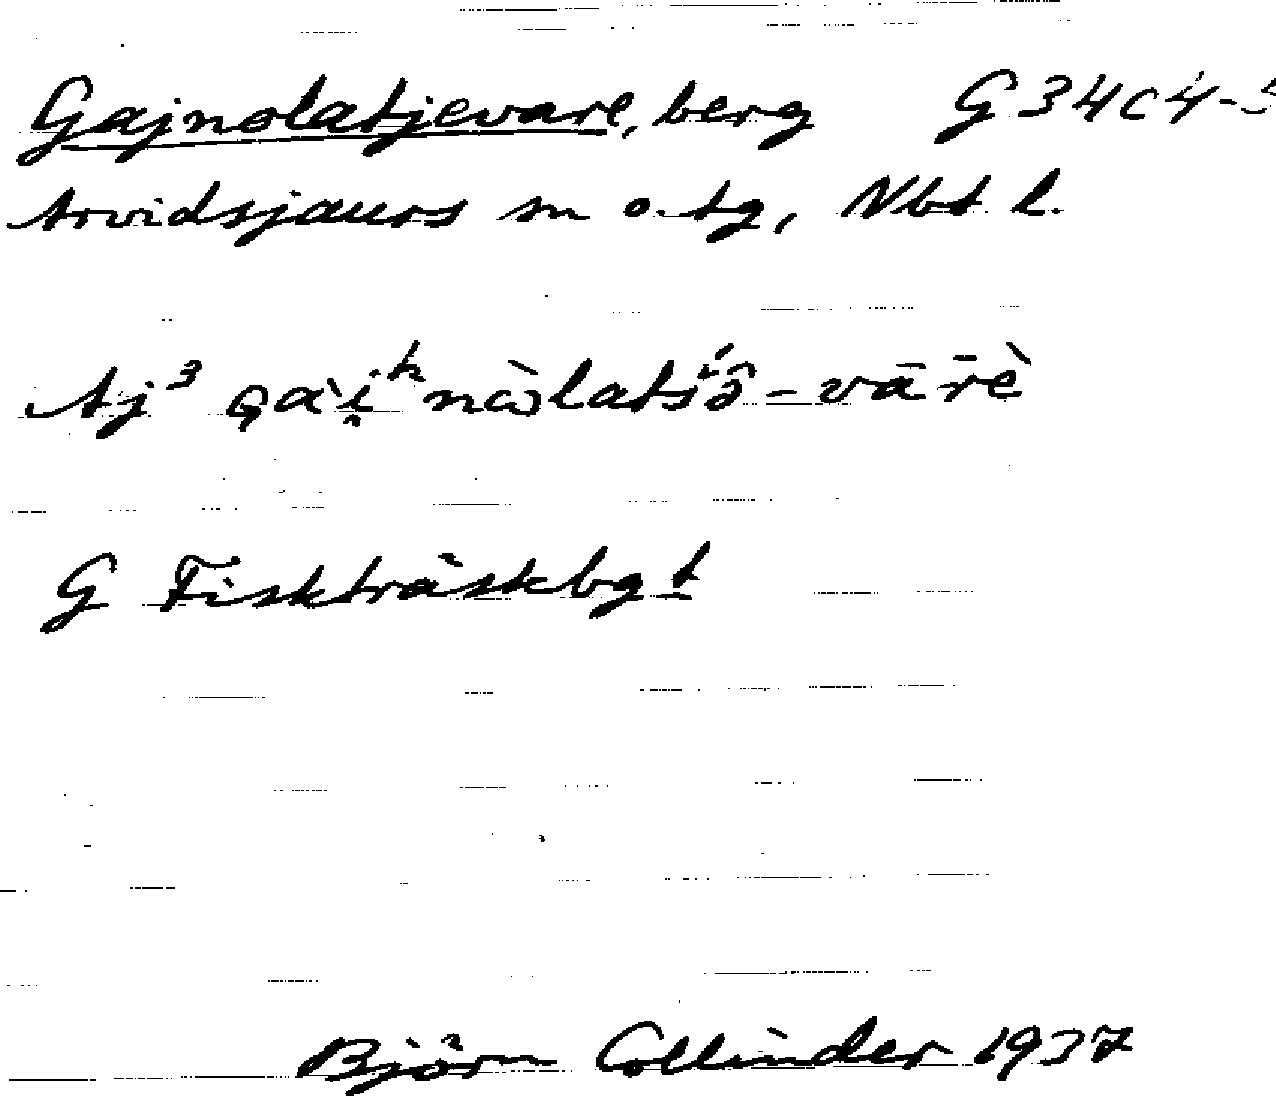 Gajnolatjevare, berg G 34 C 4-5
Arvidsjaurs sn o. tg, Nbt l.
Aj³
G Fiskträskbg t
Björn Collinder 1937